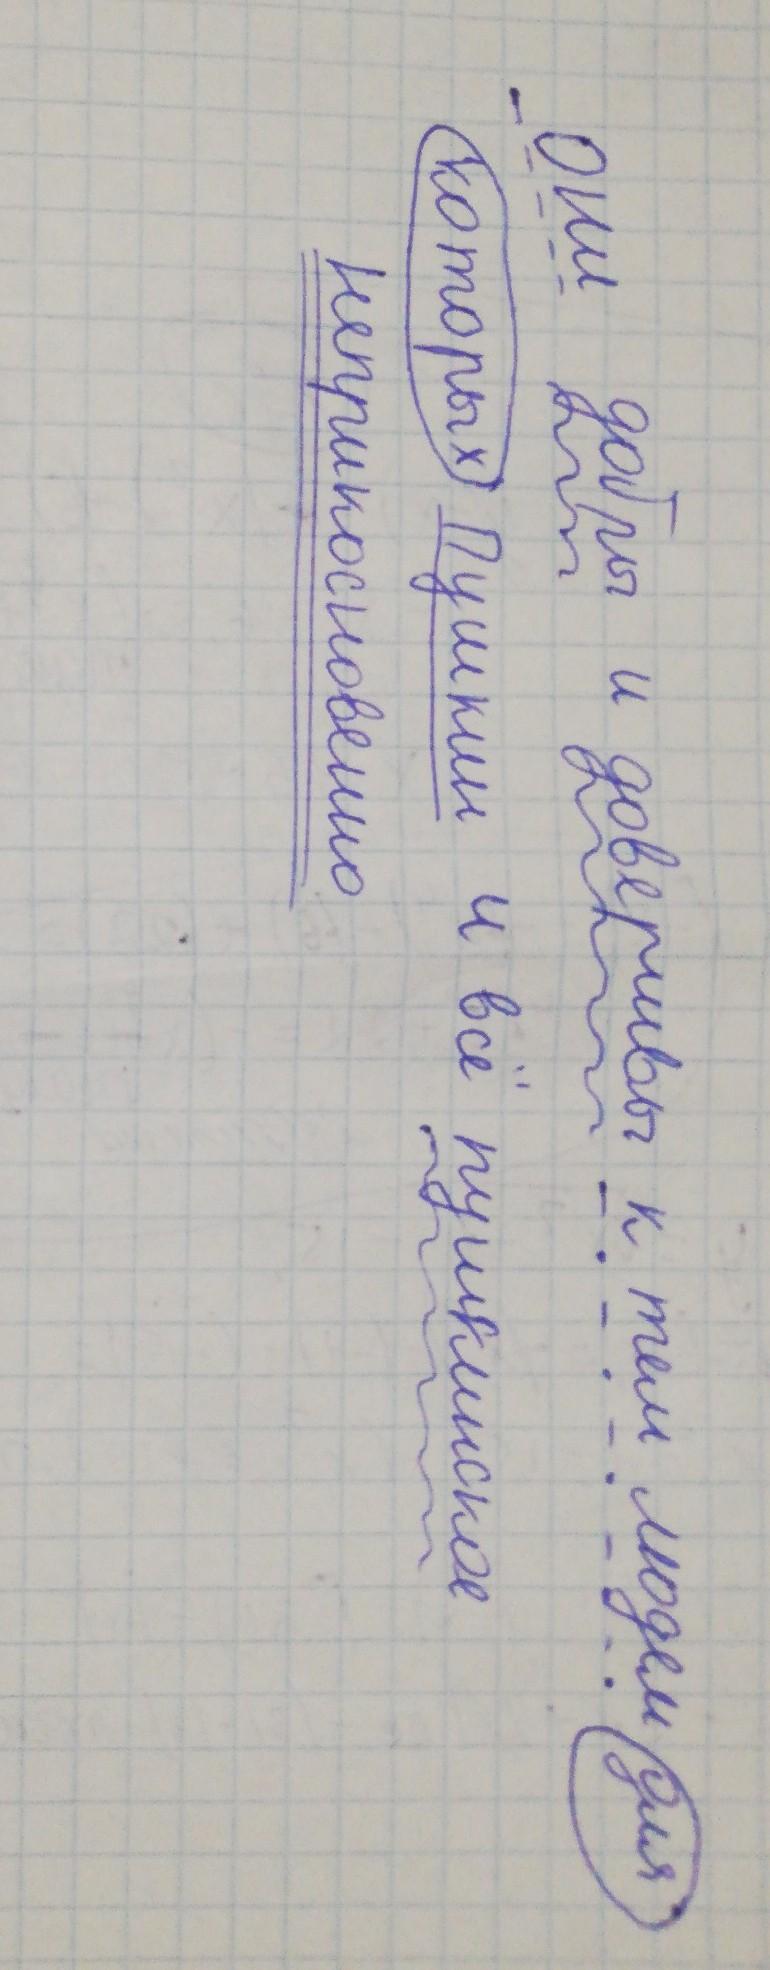 Они добры и доверчивы к тем людем для
которых Пушкин и всё пушкинское
неприкосновенно